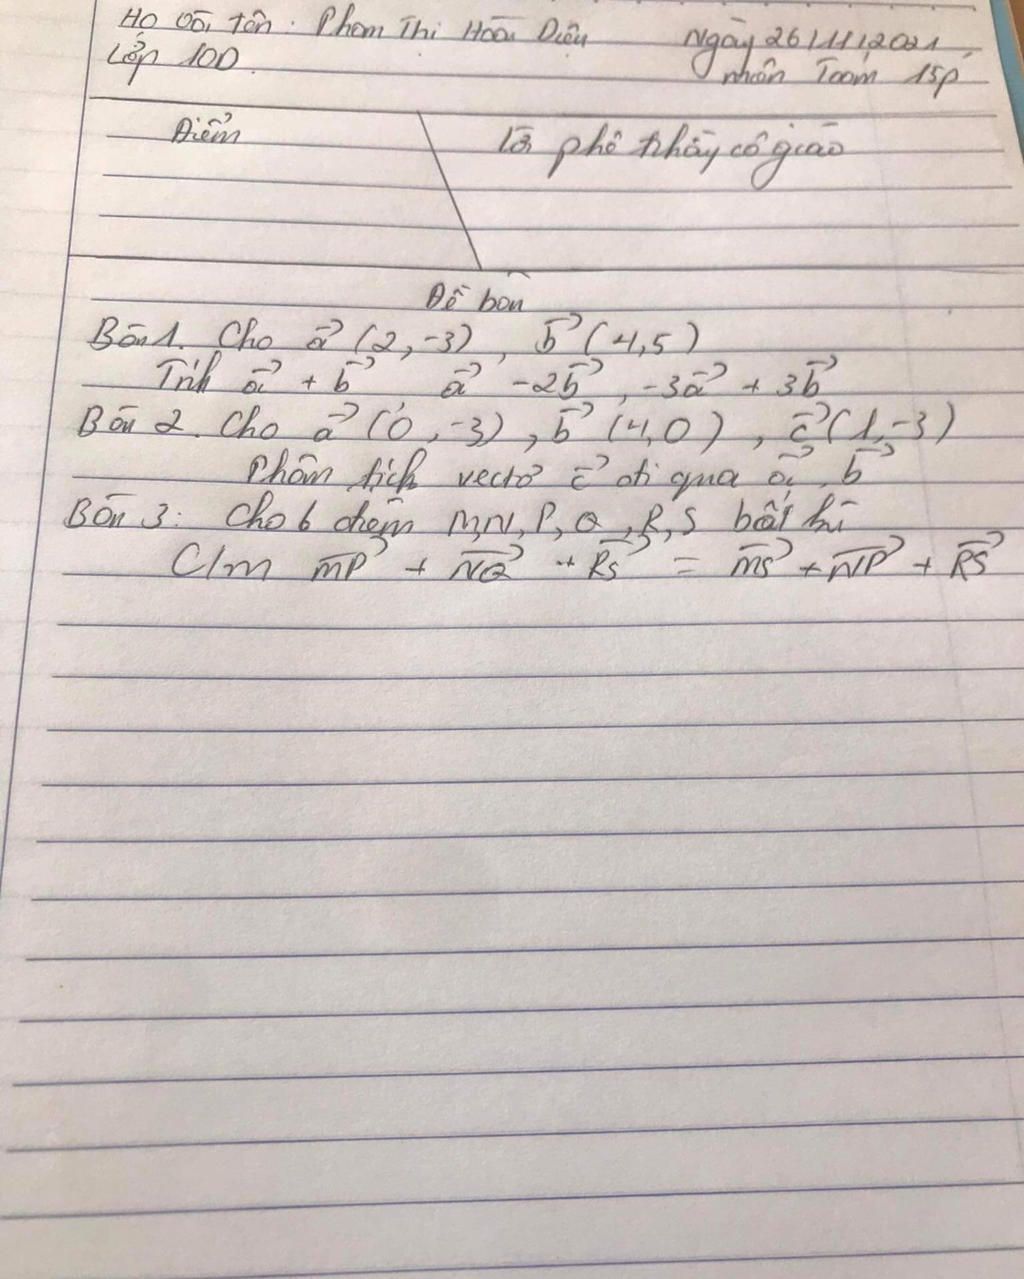 Họ và tên: Phạm Thị Hoài Diệu Ngày 26/11/2021
Lớp 10D. môn Toán 15p'
Điểm Lời phê thầy cô giáo
Đề bài
Bài 1. Cho a⃗ (2, -3), b⃗ (4,5)
Tính a⃗ + b⃗ a⃗ - 2b⃗, -3a⃗ + 3b⃗
Bài 2. Cho a⃗ (0, -3), b⃗ (4,0), c⃗ (1, -3)
Phân tích vectơ c⃗ đi qua a⃗, b⃗
Bài 3: Cho 6 điểm M, N, P, Q, R, S bất kì
C/m MP⃗ + NQ⃗ + RS⃗ = MS⃗ + NP⃗ + RS⃗